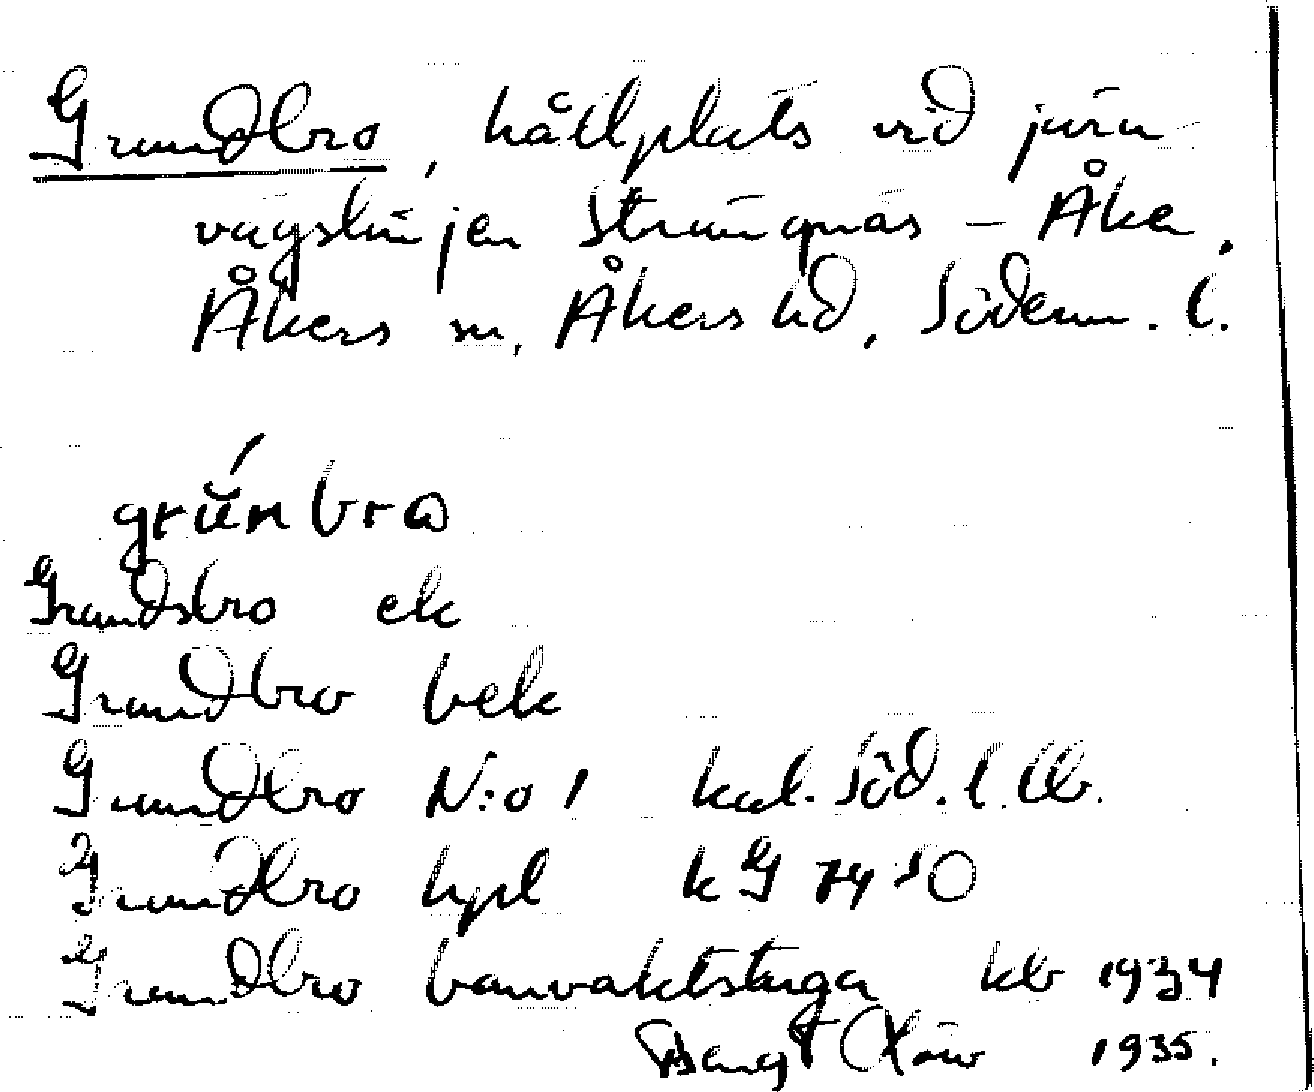 Grundbro, hållplats vid järn
vägslinjen Strängnäs – Åker,
Åkers sn, Åkers hd, Söderm. l.
grùnbro
Grundsbro ek
Grundbro bek
Grundbro N:o 1 kal. Söd. l. llv.
Grundbro hpl kG 74 SO
Grundbro banvaktstuga kb 1934
Bengt 1935.